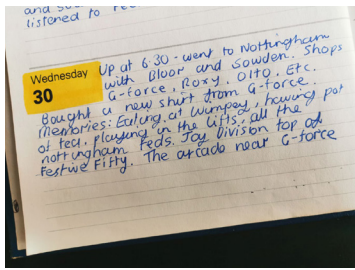 and
listened to
Wednesday
30
Up at 6:30 - went to Nottingham
with Bloor and Sowden. Shops
G-force, Rory, Olto, Etc.
Bought a new shirt from G-force.
Memories: Eating at Wimpey, having pot
of tea, playing in the lifts, all the
nottingham Teds. Joy Division top of
Festive Fifty. The arcade near G-force